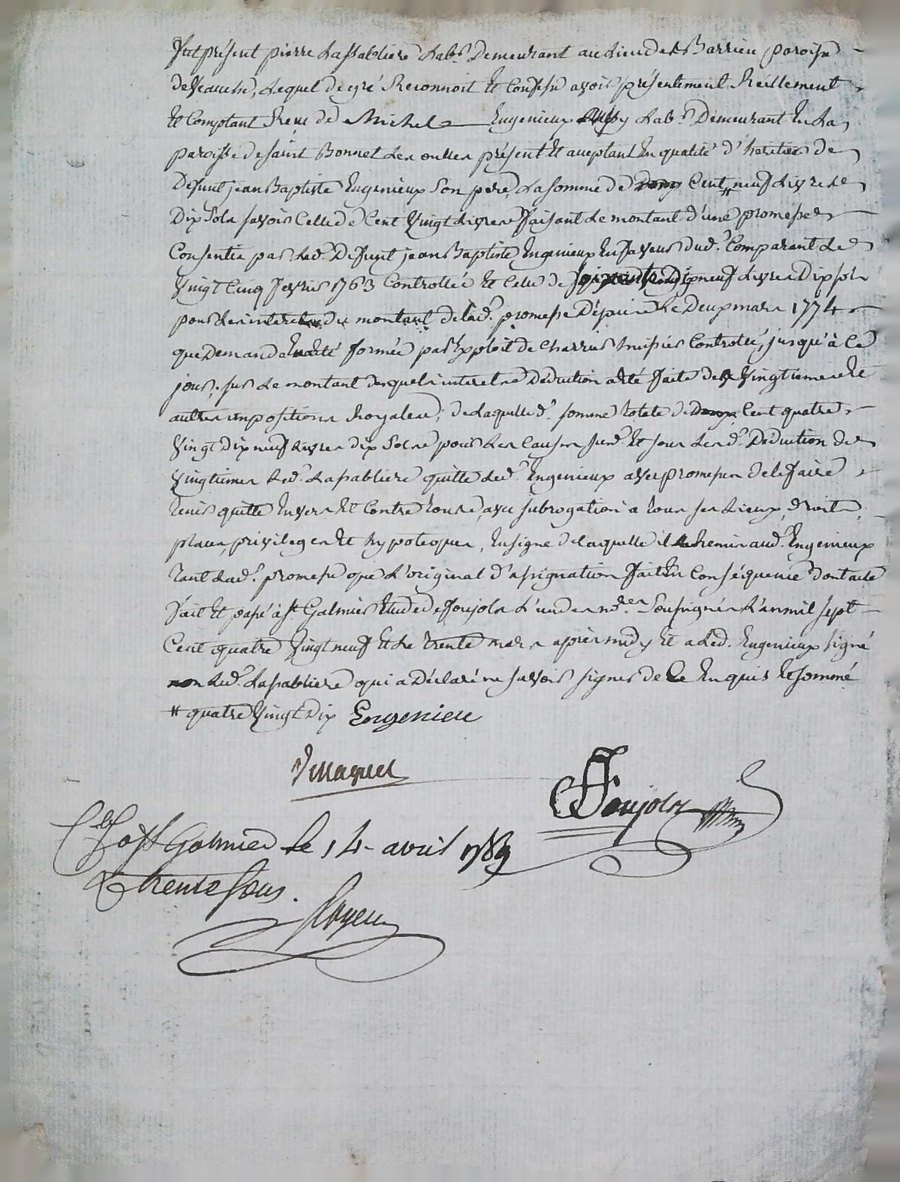 fut présent pierre Lasabliere Lab.r Demeurant au Lieu des Barrieu paroisse
de Veauche, Lequel de gré Reconnoit Et Confesse avoir présentement Réellement
Et Comptant Reçu de Michel Engenieux Lab.r Demeurant En La
paroisse de Saint Bonnet Les oulles présent Et acceptant En qualité d'heritier de
Defunt jean Baptiste Engenieux Son pere, La somme de Cent # neuf Livres
Dix Sols savoir Celle de Cent Vingt Livres faisant Le montant d'une promesse
Consentie par Led. Defunt jean Baptiste Engenieux En faveur dud. Comparant Le
Vingt Cinq fevrier 1763 Controllée Et Celle de soixante Dix neuf Livres Dix sols
pour Les interets du montant de lad. promesse Depuis Le Deux mars 1774
que demande a été formée par Exploit de Charrus huissier Controllé, jusqu'à Ce
jour, sur Le montant desquels interets Deduction a été faite des Vingtiemes Et
autres impositions Royales; de Laquelle d. somme totale de Cent quatre
Vingt Dix neuf Livres dix Sols pour Les Causes susd. Et sous Lesd. Deduction de
Vingtiemes Led. Lasabliere quitte Led. Engenieux avec promesse de le faire
tenir quitte Envers Et Contre tous, avec subrogation a tous ses Lieux, droits,
places, privileges Et hypoteques, En signe de laquelle il a Remis aud. Engenieux
tant Lad. promesse que L'original d'assignation fait En Conséquence dont acte
fait Et passé à St Galmier Etude de foujols L'un des no.res Soussignés L'an mil sept
Cent quatre Vingt neuf Et Le trente mars après midy Et a Led. Engenieux signé
non Led. Lasabliere qui a Déclaré ne savoir signer de Ce Enquis Et sommé
# quatre Vingt Dix Engenieu
Foujols
C.lé a St Galmier Le 14 avril 1789
R. trente sous.